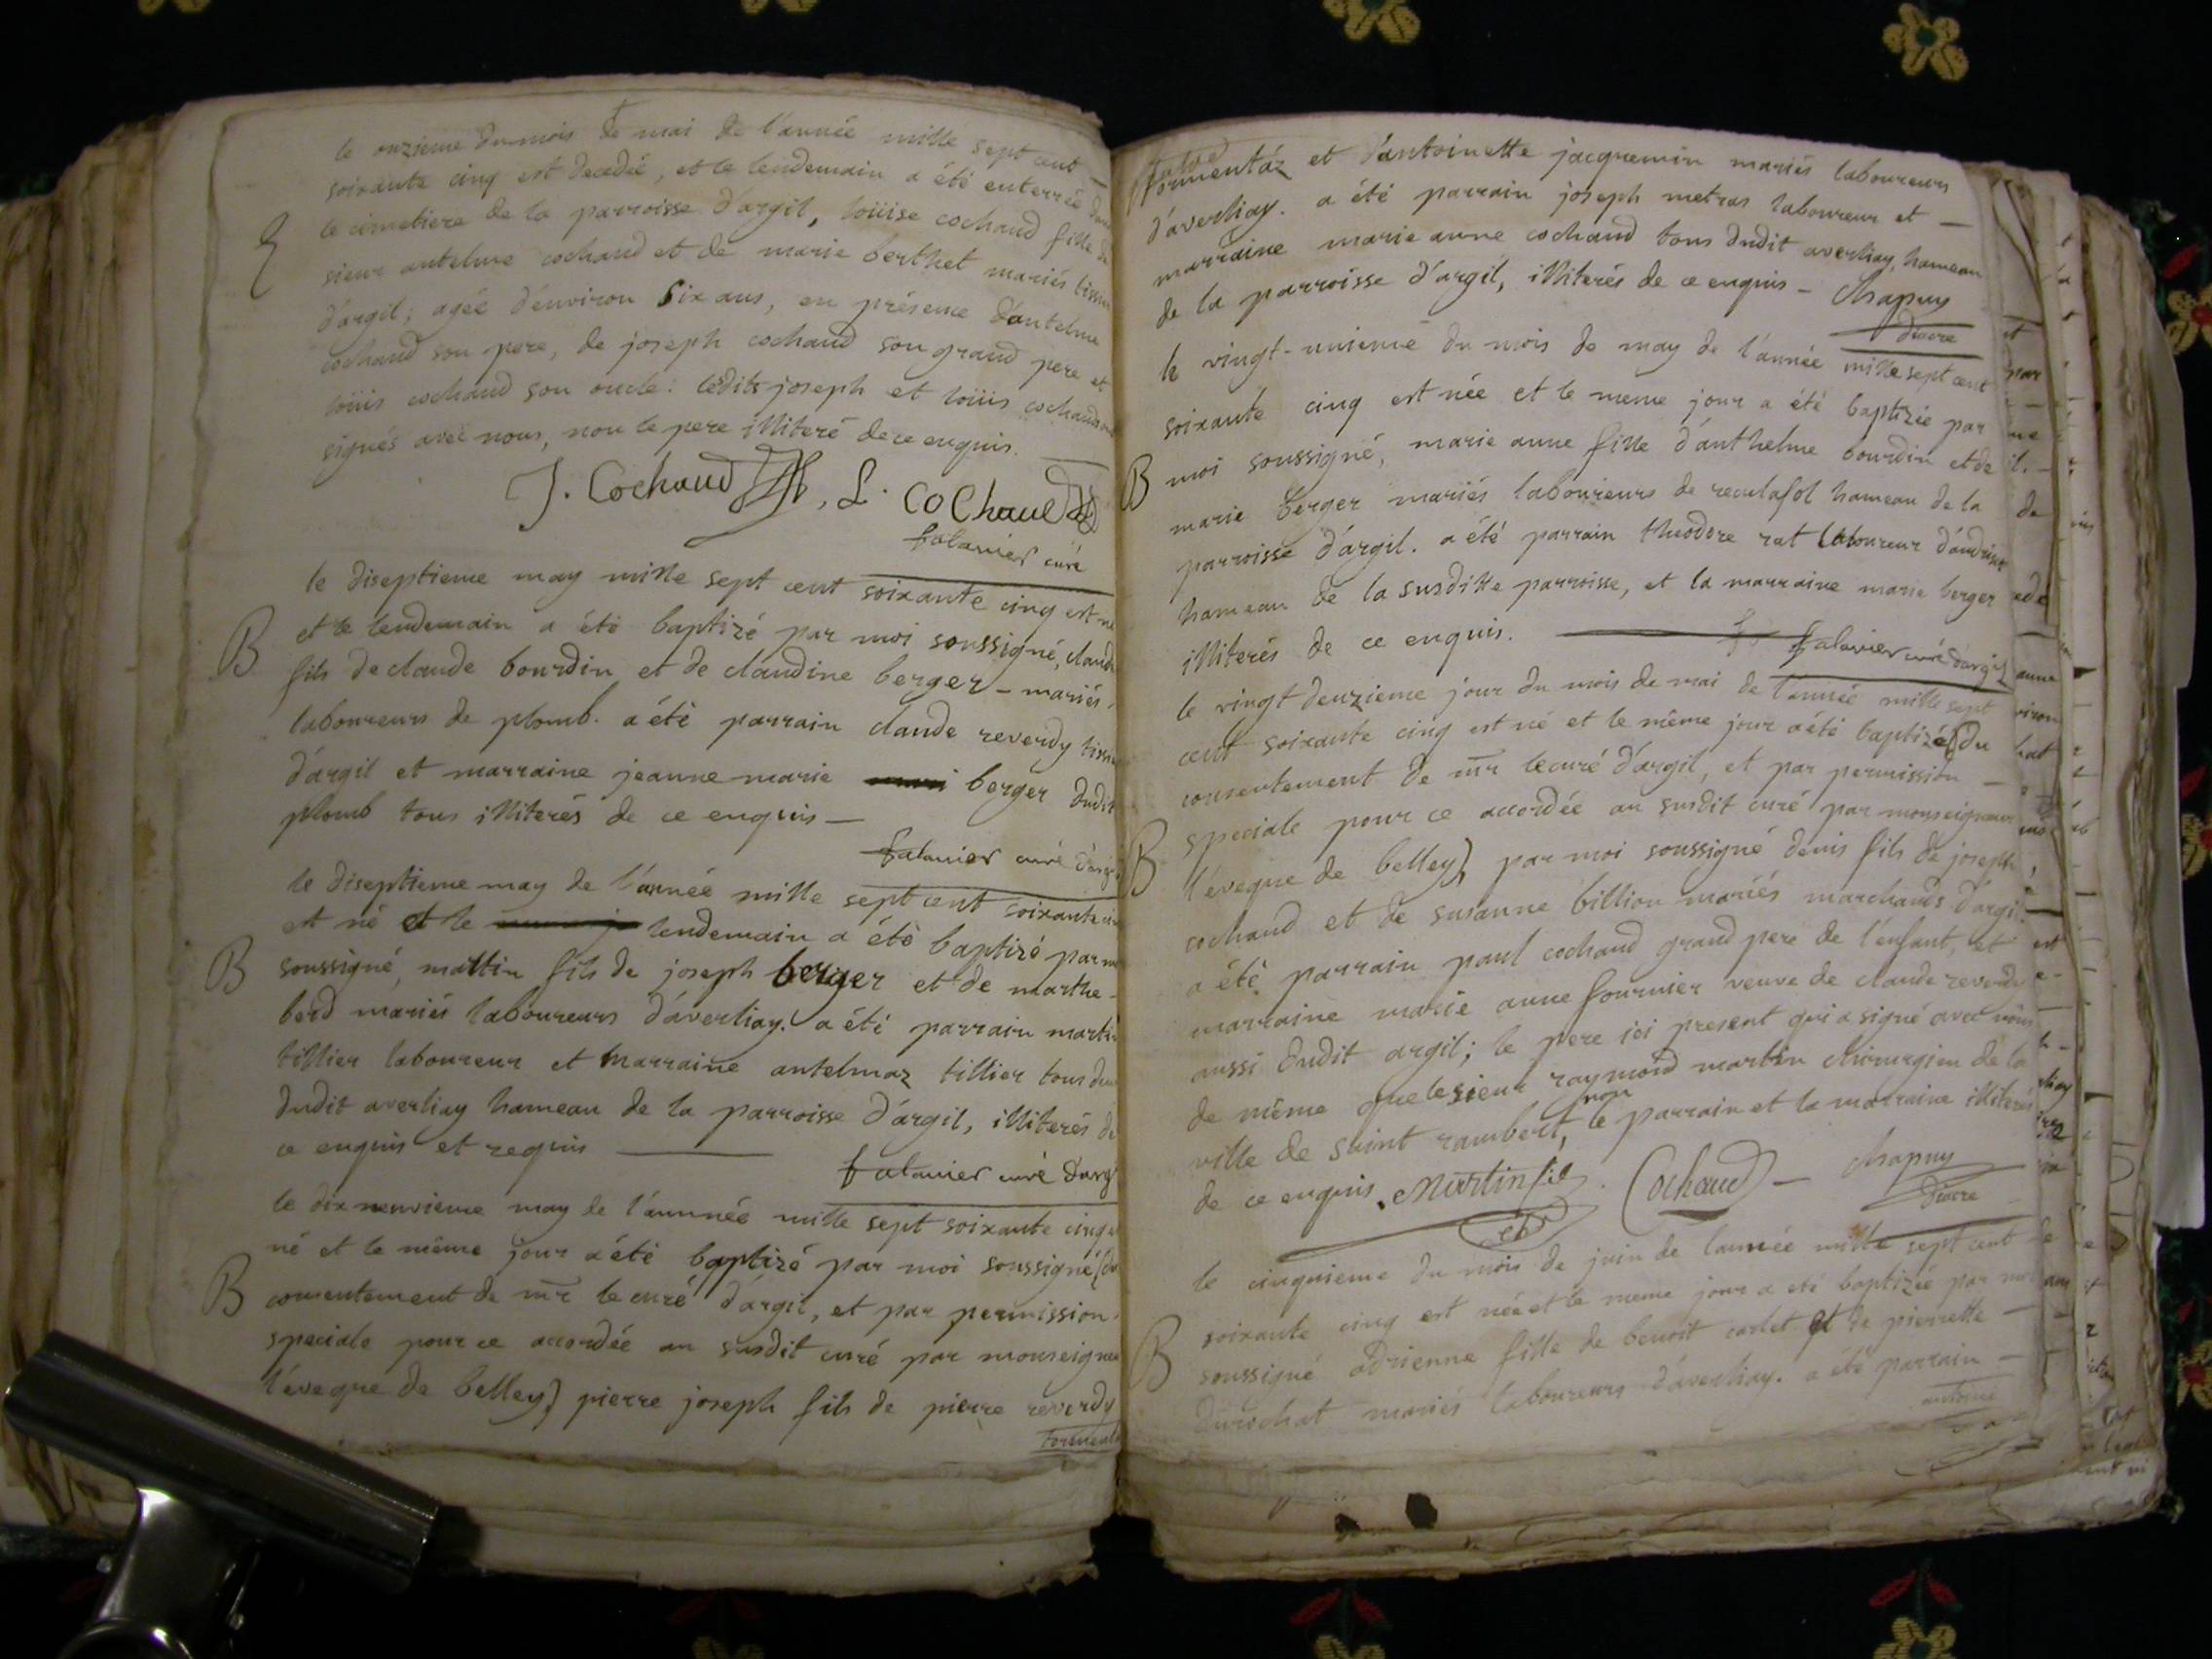 le onzieme du mois de mai de l'année mille sept cent
soixante cinq est decedée, et le lendemain a été enterrée dans
E
le cimetiere de la parroisse d'argil, loüise cochaud fille de
sieur antelme cochaud et de marie berthet mariés
d'argil; agée d'environ six ans, en présence d'antelme
cochaud son pere, de joseph cochaud son grand pere et
loüis cochaud son oncle: lesdits joseph et loüis cochaud
signés avec nous, non le pere illiteré de ce enquis.
J. Cochaud, L. Cochaud
falavier curé
le diseptieme may mille sept cent soixante cinq est né
B
et le lendemain a été baptizé par moi soussigné, claude
fils de claude bourdin et de claudine berger - mariés
laboureurs de plomb. a été parrain claude reverdy
d'argil et marraine jeanne marie berger dudit
plomb tous illiterés de ce enquis —
falavier curé d'argil
le diseptieme may de l'année mille sept cent soixante
est né et le lendemain a été baptizé par
B
soussigné, martin fils de joseph berger et de marthe -
berd mariés laboureurs d'averliay. a été parrain martin
tillier laboureur et marraine antelmaz tillier tous
dudit averliay hameau de la parroisse d'argil, illiterés de
ce enquis et requis —
falavier curé d'argil
le dix neuvieme may de l'annnée mille sept soixante cinq
né et le même jour a été baptizé par moi soussigné (du
B
consentement de mr le curé d'argil, et par permission
speciale pour ce accordée au susdit curé par monseigneur
l'éveque de belley) pierre joseph fils de pierre reverdy
formentáz et d'antoinette jacquemin mariés laboureurs
d'averliay. a été parrain joseph metras laboureur et —
marraine marie anne cochaud tous dudit averliay, hameau
de la parroisse d'argil, illiterés de ce enquis - Chapuy
diacre
le vingt-unieme du mois de may de l'année mille sept cent
soixante cinq est née et le meme jour a été baptizée par
B
moi soussigné, marie anne fille d'anthelme bourdin et de
marie berger mariés laboureurs de reculafol hameau de la
parroisse d'argil. a été parrain theodore rat laboureur
hameau de la susditte parroisse, et la marraine marie berger
illiterés de ce enquis. — falavier curé d'argil
le vingt deuzieme jour du mois de mai de l'année mille sept
cent soixante cinq est né et le même jour a été baptizé (du
consentement de mr le curé d'argil, et par permission —
B
speciale pour ce accordée au susdit curé par monseigneur
l'éveque de belley) par moi soussigné denis fils de joseph
cochaud et de susanne billion mariés marchands d'argil.
a été parrain paul cochaud grand pere de l'enfant, et
marraine marie anne fournier veuve de claude reverdy
aussi dudit argil; le pere ici present qui a signé avec nous
de même que le sieur raymond martin chirurgien de la
ville de saint rambert, non le parrain et la marraine illiterés
de ce enquis. Martin fils. Cochaud — Chapuy
diacre
le cinquieme du mois de juin de l'année mille sept cent
soixante cinq est née et le meme jour a été baptizée par moi
B
soussigné adrienne fille de benoit carlet et de pierrette —
durochat mariés laboureurs d'averliay. a été parrain —
antoine